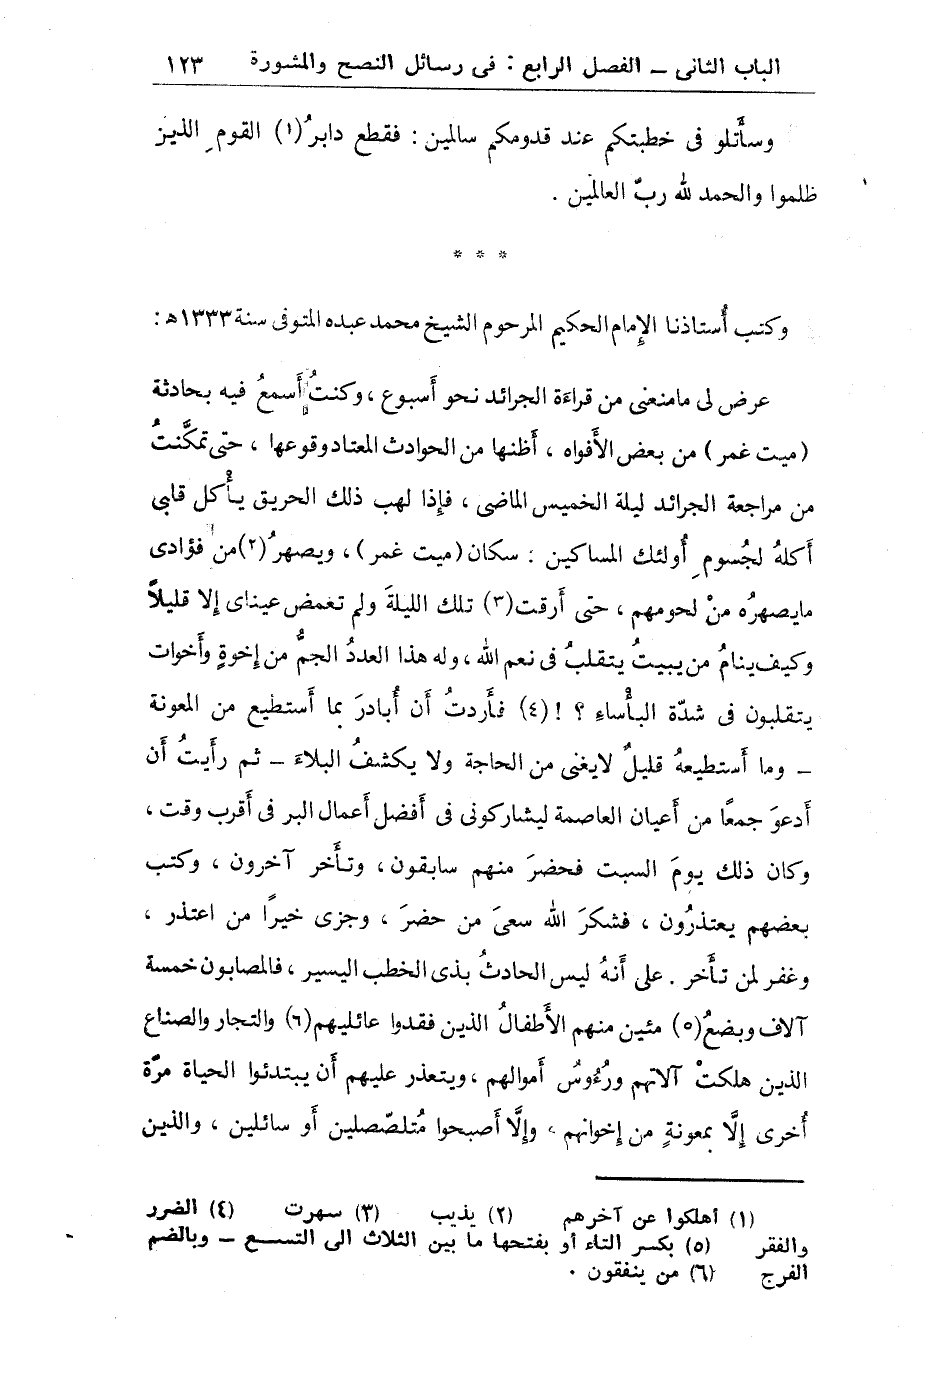 الباب الثانى – الفصل الرابع : فى رسائل النصح والمشورة ١٢٣
وسأتلو فى خطبتكم عند قدومكم سالمين : فقطع دابرُ(١) القومِ الذين
ظلموا والحمد لله ربّ العالمين .
* * *
وكتب أُستاذنا الإمام الحكيم المرحوم الشيخ محمد عبده المتوفى سنة ١٣٣٣ه :
عرض لى مامنعنى من قراءة الجرائد نحو أسبوع ، وكنتُ أَسمعُ فيه بحادثة
( ميت غمر ) من بعض الأَفواه ، أَظنها من الحوادث المعتاد وقوعها ، حتى تمكَّنتُ
من مراجعة الجرائد ليلة الخميس الماضى ، فإذا لهب ذلك الحريق يأْكل قلبى
أَكلهُ لجُسومِ أُولئك المساكين : سكان ( ميت غمر ) ، ويصهرُ(٢) من فؤادى
مايصهرُه منْ لحومهم ، حتى أَرقت(٣) تلك الليلةَ ولم تغمض عيناى إلا قليلاً
وكيف ينامُ من يبيتُ يتقلبُ فى نعم الله ، وله هذا العددُ الجمُّ من إخوةٍ وأَخوات
يتقلبون فى شدّة البأْساء ؟ ! (٤) فأَردتُ أن أُبادرَ بما أَستطيع من المعونة
– وما أَستطيعهُ قليلٌ لايغنى من الحاجة ولا يكشفُ البلاءَ – ثم رأَيتُ أن
أَدعوَ جمعًا من أَعيان العاصمة ليشاركونى فى أَفضل أَعمال البر فى أَقرب وقت ،
وكان ذلك يومَ السبت فحضرَ منهم سابقون ، وتأَخر آخرون ، وكتب
بعضهم يعتذرُون ، فشكرَ الله سعىَ من حضرَ ، وجزى خيرًا من اعتذر ،
وغفر لمن تأَخر . على أَنهُ ليس الحادثُ بذى الخطب اليسير ، فالمصابون خمسة
آلاف وبضعُ(٥) مئين منهم الأَطفالُ الذين فقدوا عائليهم(٦) والتجار والصناع
الذين هلكتْ آلاتهم ورُءُوسُ أموالهم ، ويتعذر عليهم أَن يبتدئوا الحياة مرّة
أُخرى إلَّا بمعونةٍ من إخوانهم ، وإلَّا أَصبحوا مُتلصّصلين أَو سائلين ، والذين
(١) أهلكوا عن آخرهم (٢) يذيب (٣) سهرت (٤) الضرر
والفقر (٥) بكسر التاء أو بفتحها ما بين الثلاث الى التسع – وبالضم
الفرج (٦) من ينفقون .